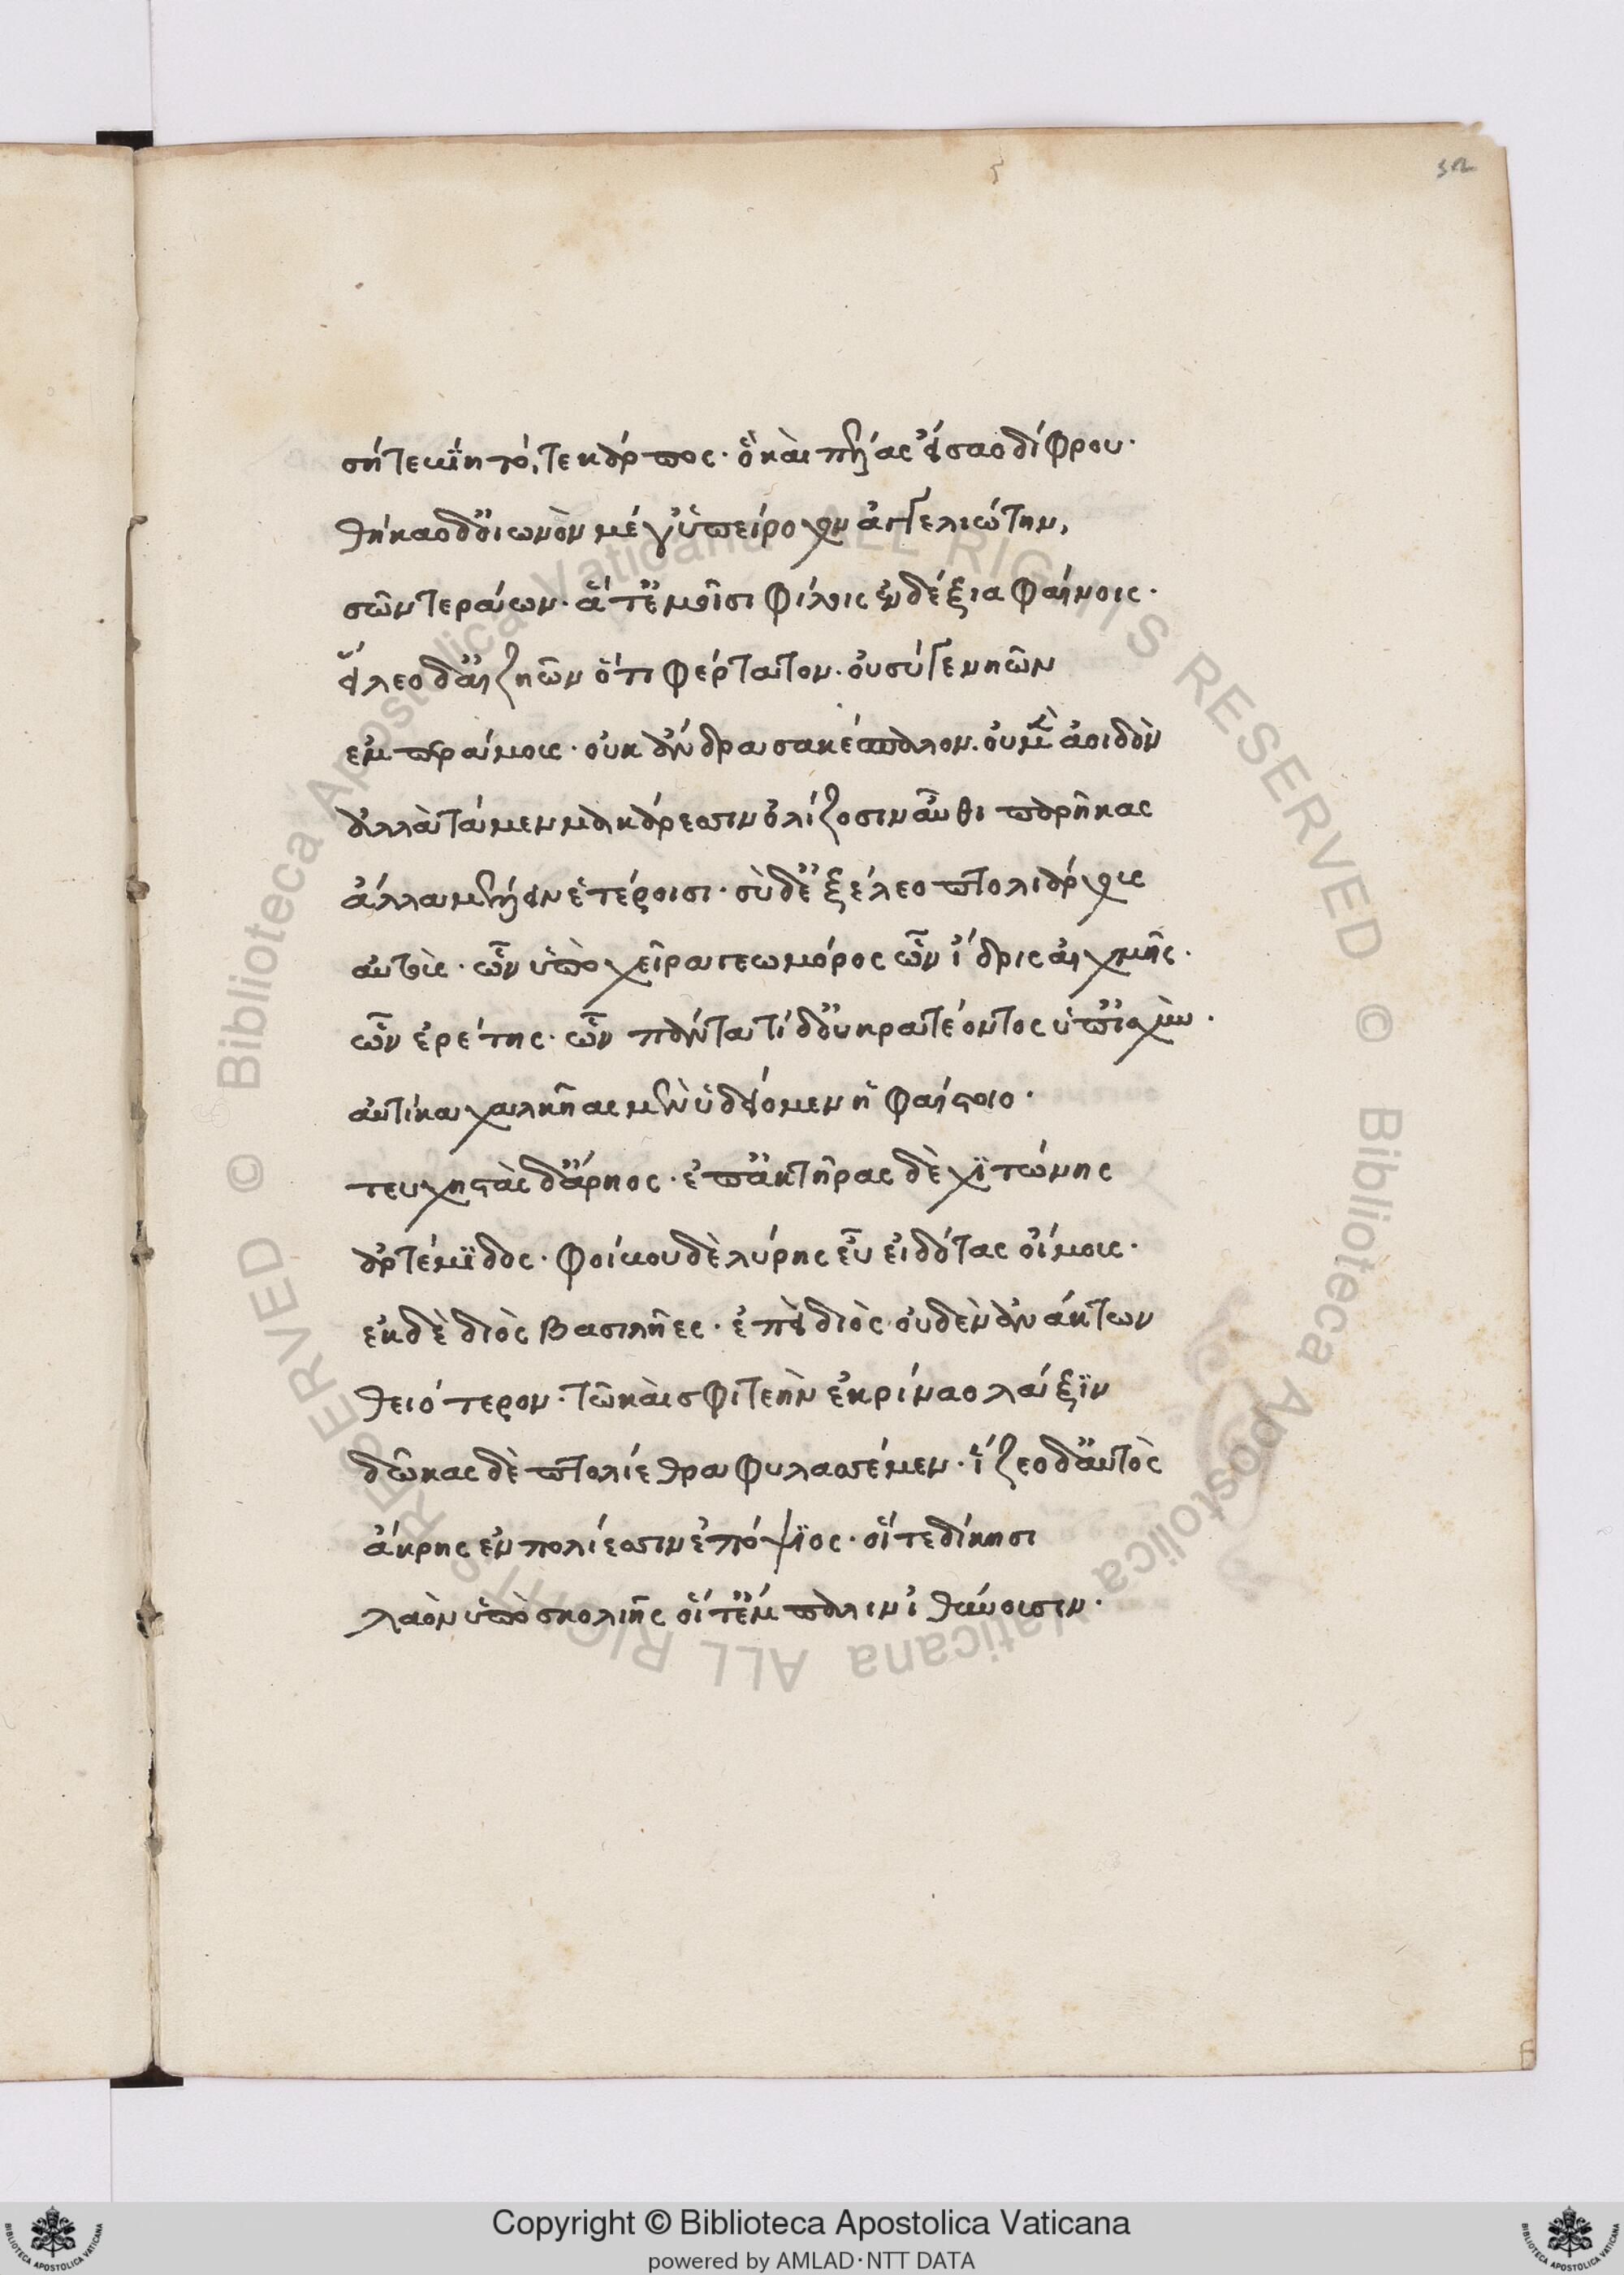 σή τε βίη τό, τε κάρτος· ὃ καὶ πέλας εἵσαο δίφρου·
θήκαο δ' οἰωνὸν μέγ' ὑπείροχον ἀγγελιώτην,
σῶν τεράων· ἅ τ' ἐμοῖσι φίλοις ἐνδέξια φαίνοις·
εἵλεο δ' αἰζηῶν ὅτι φέρτατον· οὐ σύ γε νηῶν
ἐμπράμους· οὐκ ἄνδρα σακέσπαλον· οὐ μὲν ἀοιδὸν
ἀλλὰ τὰ μὲν μακάρεσσιν ὀλίζοσιν αὖθι παρῆκας
ἄλλα μέλειν ἑτέροισι· σὺ δ' ἐξέλεο πτολιάρχους
αὐτοὺς· ὧν ὑπὸ χεῖρα γεωμόρος ὧν ἴδρις αἰχμῆς·
ὧν ἐρέτης· ὧν πάντα τί δ' οὐ κρατέοντος ὑπ' ἰσχὺν·
αὐτίκα χαλκῆας μὲν ὑδείομεν ἡφαίστοιο·
τευχηστὰς δ' ἄρηος· ἐπακτῆρας δὲ χιτώνης
ἀρτέμιδος· φοίβου δὲ λύρης εὖ εἰδότας οἴμους·
ἐκ δὲ διὸς βασιλῆες· ἐπεὶ διὸς οὐδὲν ἀνάκτων
θειότερον· τῶ καὶ σφι τεὴν ἐκρίναο λάξιν
δῶκας δὲ πτολίεθρα φυλασσέμεν· ἵζεο δ' αὐτὸς
ἄκρης ἐν πολίεσσιν ἐπόψιος· οἵ τε δίκησι
λαὸν ὑπὸ σκολιῆς οἵ τ' ἔμπαλιν ἰθύνουσιν·
Copyright © Biblioteca Apostolica Vaticana
powered by AMLAD·NTT DATA